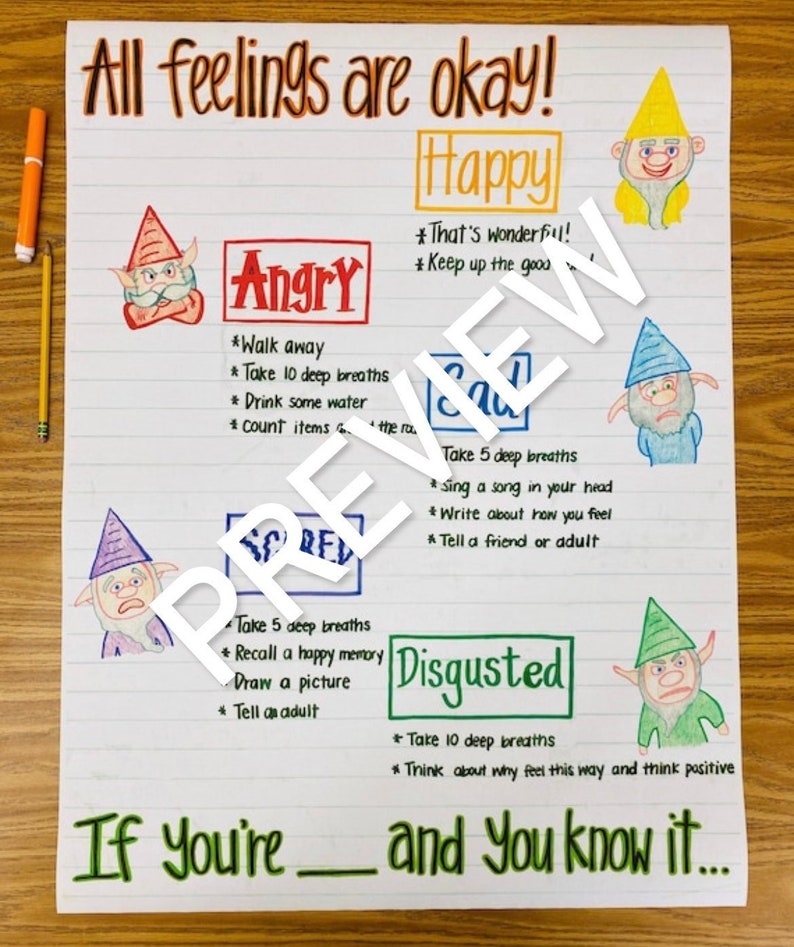 All feelings are okay!
Happy
*That's wonderful!
*Keep up the good
Angry
*Walk away
*Take 10 deep breaths
*Drink some water
*Count items the
Sad
Take 5 deep breaths
*Sing a song in your head
*Write about how you feel
*Tell a friend or adult
SCARED
*Take 5 deep breaths
*Recall a happy memory
*Draw a picture
*Tell an adult
Disgusted
*Take 10 deep breaths
*Think about why feel this way and think positive
If you're ___ and you know it...
PREVIEW